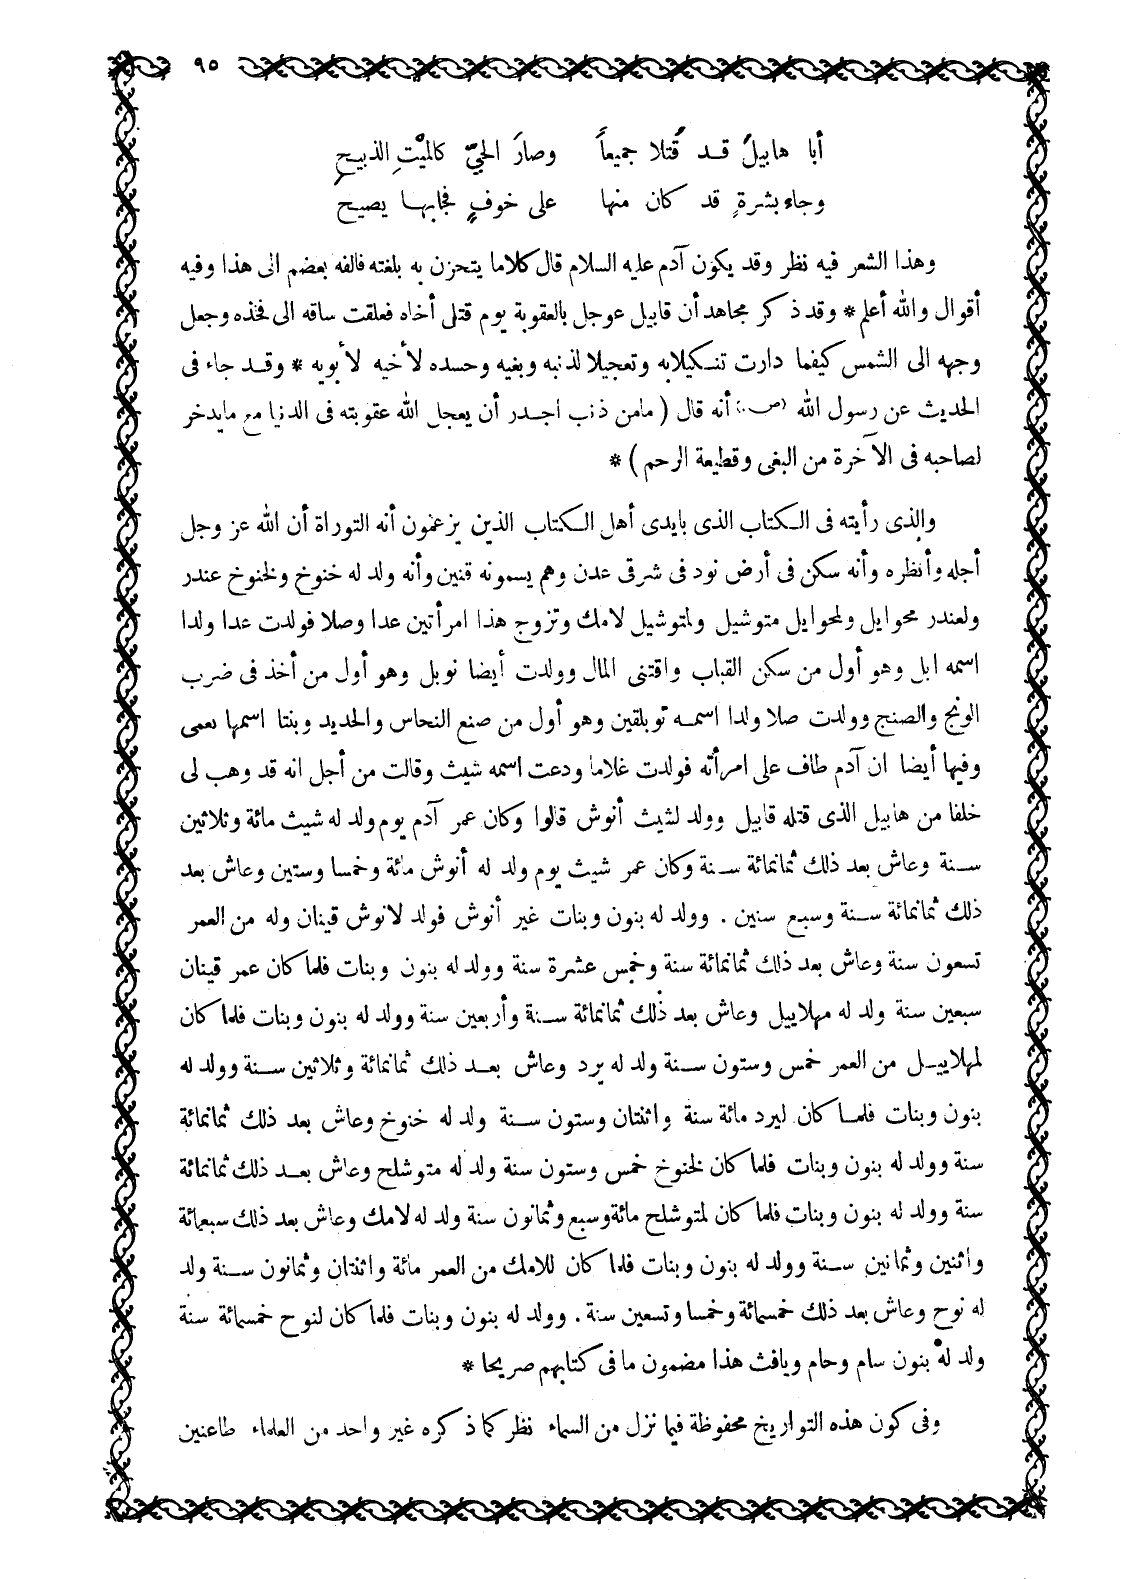 ٩٥
أبا هابيلَ قد قُتلا جميعاً وصارَ الحيّ كالميْتِ الذبيح
وجاء بشرةٍ قد كان منها على خوفٍ فجابها يصيح
وهذا الشعر فيه نظر وقد يكون آدم عليه السلام قال كلاما يتحزن به بلغته فالفه بعضهم الى هذا وفيه
أقوال والله أعلم * وقد ذكر مجاهد أن قابيل عوجل بالعقوبة يوم قتل أخاه فعلقت ساقه الى فخذه وجعل
وجهه الى الشمس كيفما دارت تنكيلا به وتعجيلا لذنبه وبغيه وحسده لأخيه لأبويه * وقد جاء فى
الحديث عن رسول الله (ص) أنه قال ( مامن ذنب اجدر أن يعجل الله عقوبته فى الدنيا مع مايدخر
لصاحبه فى الآخرة من البغى وقطيعة الرحم ) *
والذى رأيته فى الكتاب الذى بايدى أهل الكتاب الذين يزعمون أنه التوراة أن الله عز وجل
أجله وأنظره وأنه سكن فى أرض نود فى شرقى عدن وهم يسمونه قنين وأنه ولد له خنوخ ولخنوخ عندر
ولعندر محوايل ولمحوايل متوشيل ولمتوشيل لامك وتزوج هذا امرأتين عدا وصلا فولدت عدا ولدا
اسمه ابل وهو أول من سكن القباب واقتنى المال وولدت أيضا نوبل وهو أول من أخذ فى ضرب
الونج والصنج وولدت صلا ولدا اسمه توبلقين وهو أول من صنع النحاس والحديد وبنتا اسمها نعمى
وفيها أيضا ان آدم طاف على امرأته فولدت غلاما ودعت اسمه شيث وقالت من أجل انه قد وهب لى
خلفا من هابيل الذى قتله قابيل وولد لشيث أنوش قالوا وكان عمر آدم يوم ولد له شيث مائة وثلاثين
سنة وعاش بعد ذلك ثمانمائة سنة وكان عمر شيث يوم ولد له أنوش مائة وخمسا وستين وعاش بعد
ذلك ثمانمائة سنة وسبع سنين . وولد له بنون وبنات غير أنوش فولد لانوش قينان وله من العمر
تسعون سنة وعاش بعد ذلك ثمانمائة سنة وخمس عشرة سنة وولد له بنون وبنات فلما كان عمر قينان
سبعين سنة ولد له مهلاييل وعاش بعد ذلك ثمانمائة سنة وأربعين سنة وولد له بنون وبنات فلما كان
لمهلاييل من العمر خمس وستون سنة ولد له يرد وعاش بعد ذلك ثمانمائة وثلاثين سنة وولد له
بنون وبنات فلما كان ليرد مائة سنة واثنتان وستون سنة ولد له خنوخ وعاش بعد ذلك ثمانمائة
سنة وولد له بنون وبنات فلما كان لخنوخ خمس وستون سنة ولد له متوشلح وعاش بعد ذلك ثمانمائة
سنة وولد له بنون وبنات فلما كان لمتوشلح مائة وسبع وثمانون سنة ولد له لامك وعاش بعد ذلك سبعمائة
واثنين وثمانين سنة وولد له بنون وبنات فلما كان للامك من العمر مائة واثنتان وثمانون سنة ولد
له نوح وعاش بعد ذلك خمسمائة وخمسا وتسعين سنة . وولد له بنون وبنات فلما كان لنوح خمسمائة سنة
ولد له بنون سام وحام ويافث هذا مضمون ما فى كتابهم صريحا *
وفى كون هذه التواريخ محفوظة فيما نزل من السماء نظر كما ذكره غير واحد من العلماء طاعنين